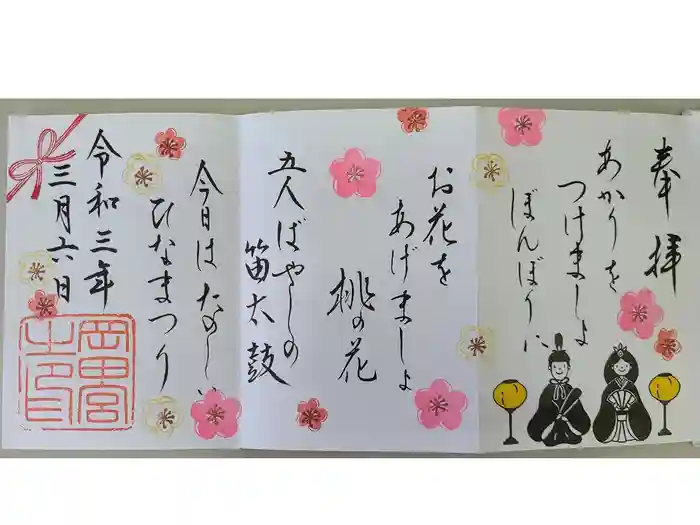 奉拝
あかりを
つけましょ
ぼんぼりに
お花を
あげましょ
桃の花
五人ばやしの
笛太鼓
今日はたのしい
ひなまつり
令和三年
三月六日
岡田宮
之印